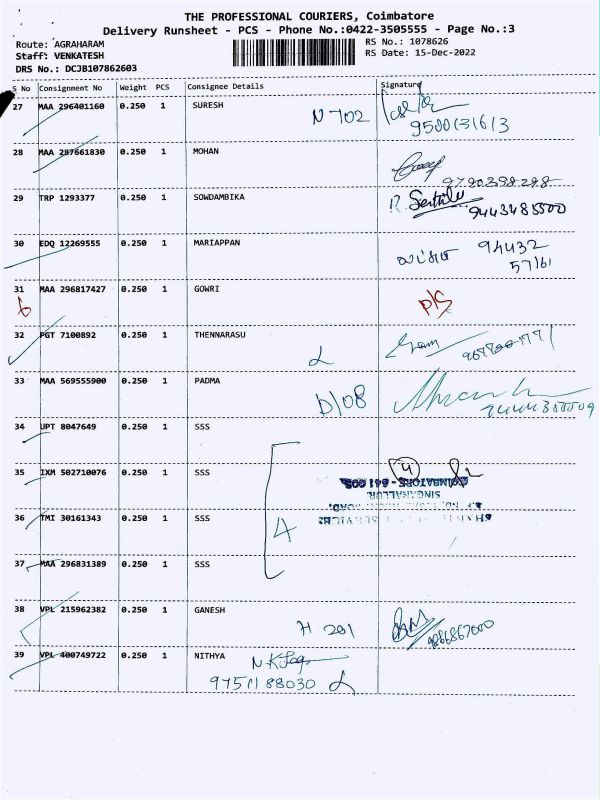 THE PROFESSIONAL COURIERS, Coimbatore
Delivery Runsheet - PCS - Phone No.:0422-3505555 - Page No.:3
Route: AGRAHARAM
RS No.: 1078626
Staff: VENKATESH
RS Date: 15-Dec-2022
DRS No.: DCJB107862603
S No Consignment No Weight PCS Consignee Details Signature
27 MAA 296401160 0.250 1 SURESH
N 702
28 MAA 287661830 0.250 1 MOHAN
29 TRP 1293377 0.250 1 SOWDAMBIKA
30 EDQ 12269555 0.250 1 MARIAPPAN
94432
57161
31 MAA 296817427 0.250 1 GOWRI
D/S
32 PGT 7100892 0.250 1 THENNARASU
33 MAA 569555900 0.250 1 PADMA
D/08
34 UPT 8047649 0.250 1 SSS
35 IXM 502710076 0.250 1 SSS
4
COIMBATORE - 641 005
SINGANALLUR
36 TMI 30161343 0.250 1 SSS
4
37 MAA 296831389 0.250 1 SSS
38 VPL 215962382 0.250 1 GANESH
H 201
39 VPL 400749722 0.250 1 NITHYA
9751188030